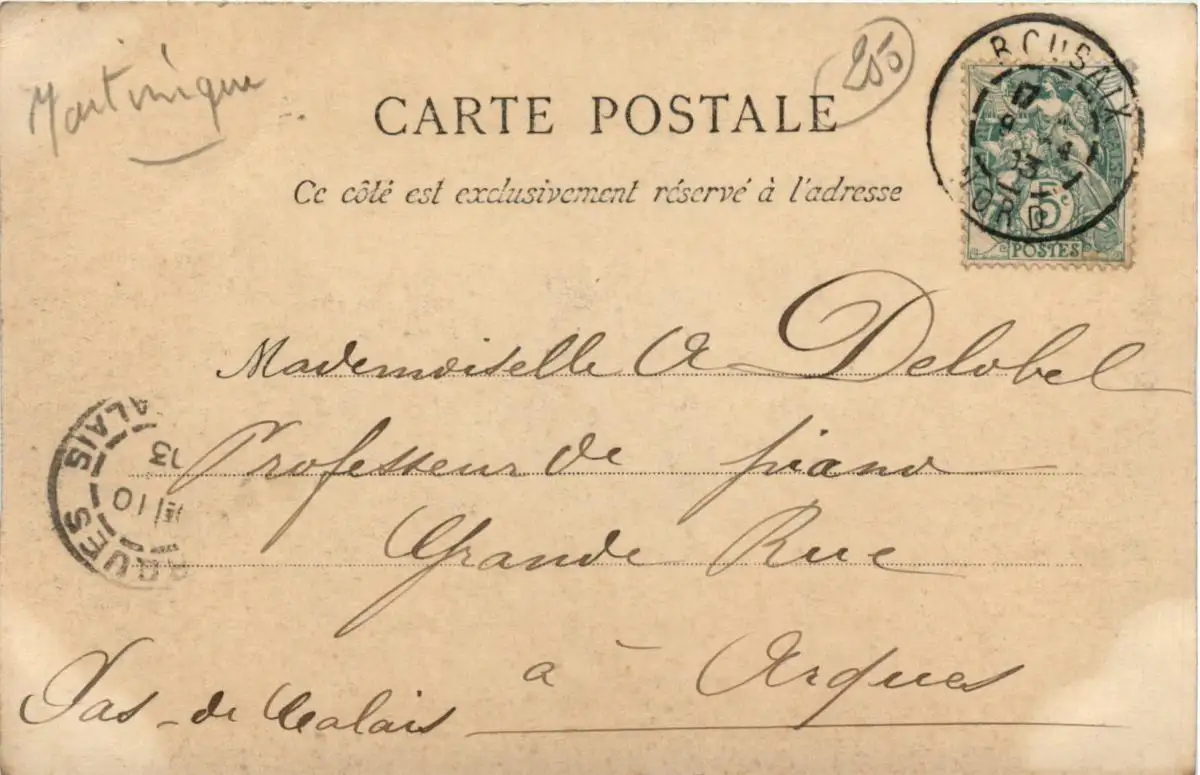 Martinique
250
CARTE POSTALE
Ce côté est exclusivement réservé à l'adresse
5c
POSTES
NORD
Mademoiselle A Delobel
Professeur de piano
Grande Rue
à Arques
Pas-de Calais
ALAIS
13
10
QUES